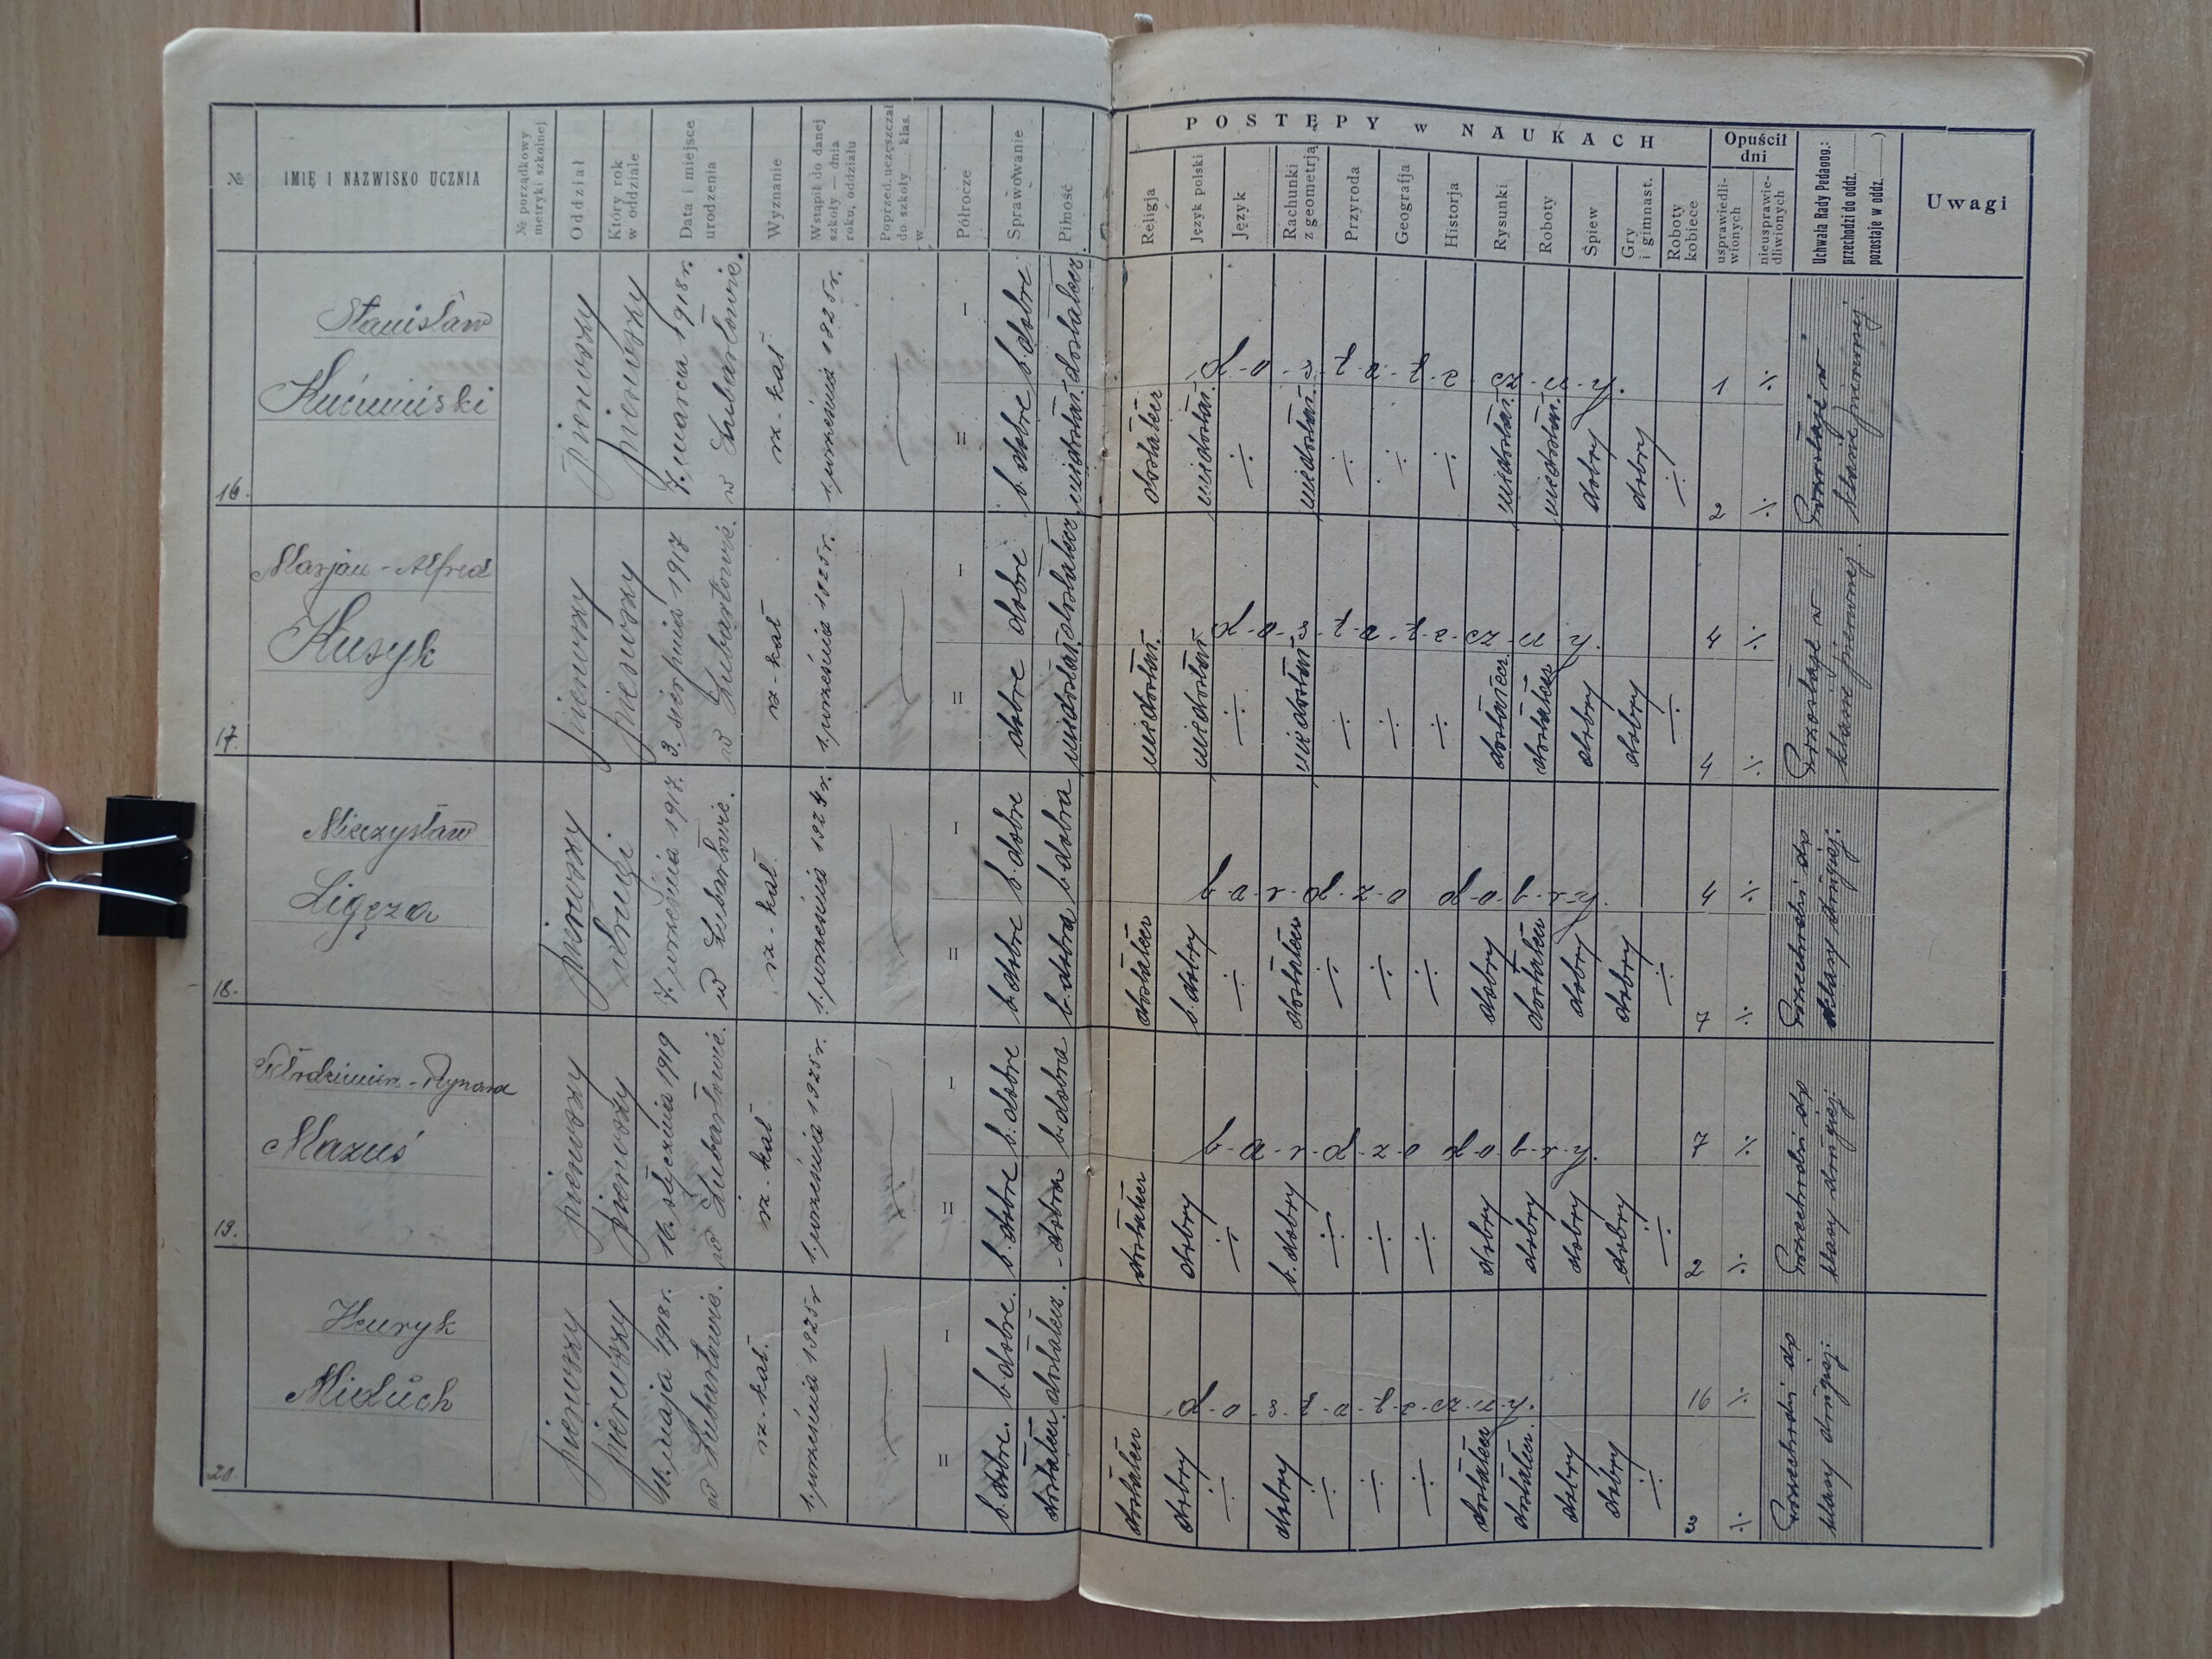 №
IMIĘ I NAZWISKO UCZNIA
№ porządkowy
metryki szkolnej
Oddział
Który rok
w oddziale
Data i miejsce
urodzenia
Wyznanie
Wstąpił do danej
szkoły — dnia
roku, oddziału
Poprzed. uczęszczał
do szkoły... klas.
w
Półrocze
Sprawowanie
Pilność
POSTĘPY w NAUKACH
Religja
Język polski
Język
Rachunki
z geometrją
Przyroda
Geografja
Historja
Rysunki
Roboty
Śpiew
Gry
i gimnast.
Roboty
kobiece
Opuścił
dni
usprawiedli-
wionych
nieusprawie-
dliwionych
Uchwała Rady Pedagog.:
przechodzi do oddz.
pozostaje w oddz.
Uwagi
16.
Stanisław
Kuźmiński
pierwszy
pierwszy
7. marca 1918 r.
w Lubartowie.
rz-kat
1. września 1925 r.
I
b. dobre
dostatecz.
d-o-s-t-a-t-e-cz-n-y.
1 ./.
II
b. dobre
niedostat.
dostatecz
niedostat.
÷
niedostat.
÷
÷
÷
niedostat.
niedostat.
dobry
dobry
÷
2 ./.
Pozostaje w
klasie pierwszej.
17.
Marjan-Alfred
Kusyk
pierwszy
pierwszy
3. sierpnia 1917
w Lubartowie.
rz-kat
1. września 1925 r.
I
dobre
dostatecz
d-o-s-t-a-t-e-cz-n-y.
4 ./.
II
dobre
niedostat.
niedostat.
niedostat
÷
niedostat
÷
÷
÷
dostatecz.
dostatecz
dobry
dobry
÷
4 ./.
Pozostaje w
klasie pierwszej.
18.
Mieczysław
Ligęza
pierwszy
drugi
7. września 1917.
w Lubartowie.
rz-kat
1. września 1924 r.
I
b. dobre
b. dobra
b-a-r-d-z-o d-o-b-r-y.
4 ./.
II
b. dobre
b. dobra
dostatecz
b. dobry
÷
dostatecz
÷
÷
÷
dobry
dostatecz
dobry
dobry
÷
7 ./.
Przechodzi do
klasy drugiej.
19.
Włodzimierz-Ryszard
Mazuś
pierwszy
pierwszy
16. stycznia 1919
w Lubartowie.
rz-kat
1. września 1925 r.
I
b. dobre
b. dobra
b-a-r-d-z-o d-o-b-r-y.
7 ./.
II
b. dobre
- dobra
dostatecz
dobry
÷
b. dobry
÷
÷
÷
dobry
dobry
dobry
dobry
÷
2 ./.
Przechodzi do
klasy drugiej.
20.
Henryk
Mieluch
pierwszy
pierwszy
maja 1918 r.
w Lubartowie.
rz-kat.
1. września 1925 r
I
b. dobre.
dostatecz.
d-o-s-t-a-t-e-cz-n-y.
16 ./.
II
b. dobre.
dostatecz.
dostatecz
dobry
÷
dobry
÷
÷
÷
dostatecz
dostatecz.
dobry
dobry
÷
3 ./.
Przechodzi do
klasy drugiej.